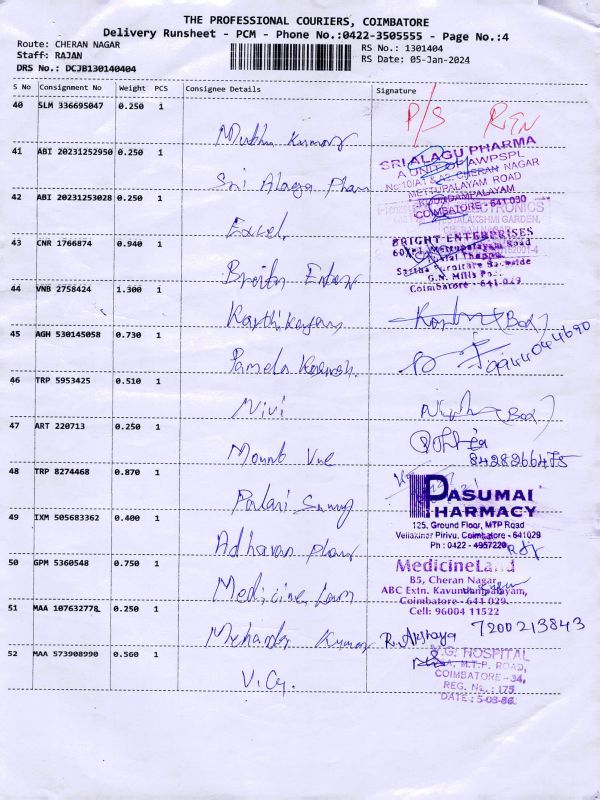 THE PROFESSIONAL COURIERS, COIMBATORE
Delivery Runsheet - PCM - Phone No.:0422-3505555 - Page No.:4
Route: CHERAN NAGAR
RS No.: 1301404
Staff: RAJAN
RS Date: 05-Jan-2024
DRS No.: DCJB130140404
S No Consignment No Weight PCS Consignee Details Signature
40 SLM 336695047 0.250 1
P/S RTN
Muthu Kumar
41 ABI 20231252950 0.250 1
SRI ALAGU PHARMA
A UNIT OF AWPSPL
CHERAN NAGAR
METTUPALAYAM ROAD
KOUNDAMPALAYAM
COIMBATORE - 641 030
Sri Alagu Pham
42 ABI 20231253028 0.250 1
ELECTRONICS
LAKSHMI GARDEN,
Excel
43 CNR 1766874 0.940 1
BRIGHT ENTERPRISES
Mettupalayam Road
G.N. Mills Post
Coimbatore - 641 029
Bright Enter
44 VNB 2758424 1.300 1
Karthikeyan
(Box)
45 AGH 530145058 0.730 1
9944044690
Pamela
46 TRP 5953425 0.510 1
Nivi
(Box)
47 ART 220713 0.250 1
8428266475
Mount Vue
48 TRP 8274468 0.870 1
PASUMAI
PHARMACY
125, Ground Floor, MTP Road
Vellakinar Pirivu, Coimbatore - 641029
Ph : 0422 - 4957220
Palani Samy
49 IXM 505683362 0.400 1
Adhavan
50 GPM 5360548 0.750 1
MedicineLand
B5, Cheran Nagar,
ABC Extn. Kavundampalayam,
Coimbatore - 641 029.
Cell: 96004 11522
Medicine
51 MAA 107632778 0.250 1
R. Akshaya 7200213843
Kumar
52 MAA 573908990 0.560 1
V.G. HOSPITAL
M.T.P. ROAD,
COIMBATORE - 34,
REG. No.: 175
DATE: 5-03-86.
V.G.